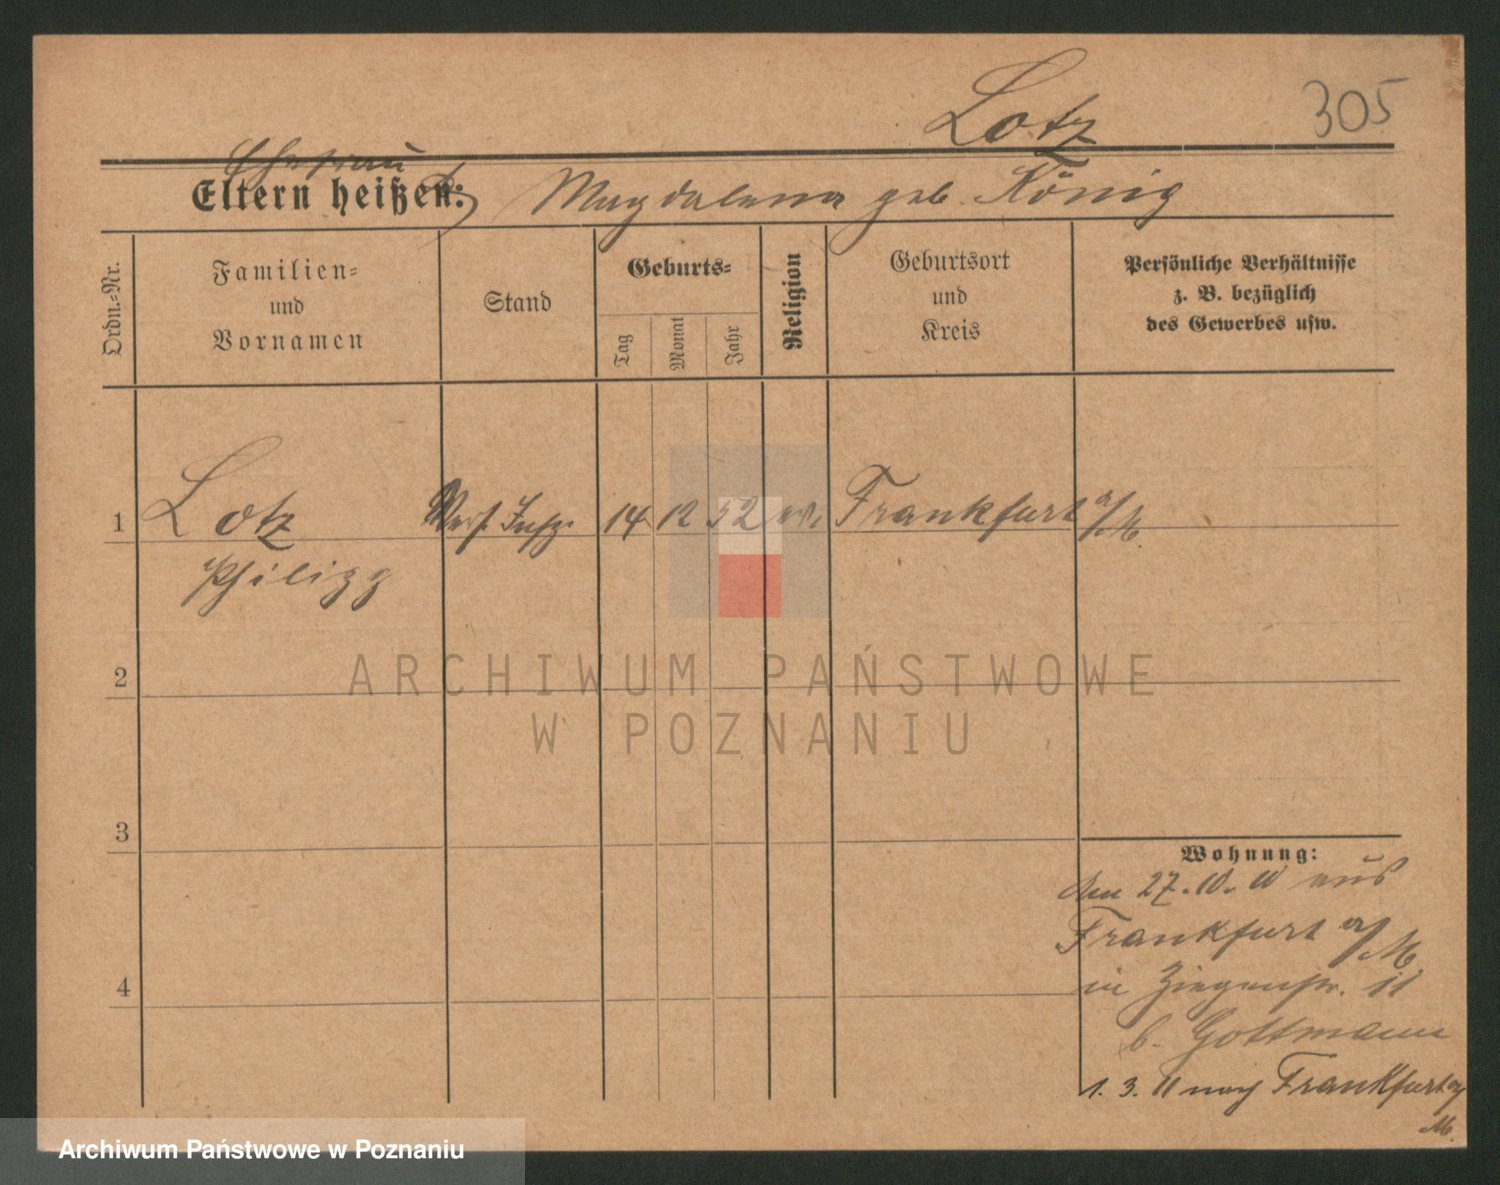 Lotz
305
Ehefrau
Eltern heißen: Magdalena geb. König
Ordn.=Nr.
Familien=
und
Vornamen
Stand
Geburts=
Tag
Monat
Jahr
Religion
Geburtsort
und
Kreis
Persönliche Verhältnisse
z. B. bezüglich
des Gewerbes usw.
1 Lotz Vers. Insp. 14 12 52 ev. Frankfurt a/M.
Philipp
2
3
4
Wohnung:
27.10.10 aus
Frankfurt a/M
in Ziegenstr. 11
b. Gottmann
1. 3. 11 nach Frankfurt a/
M.
ARCHIWUM PAŃSTWOWE
W POZNANIU
Archiwum Państwowe w Poznaniu